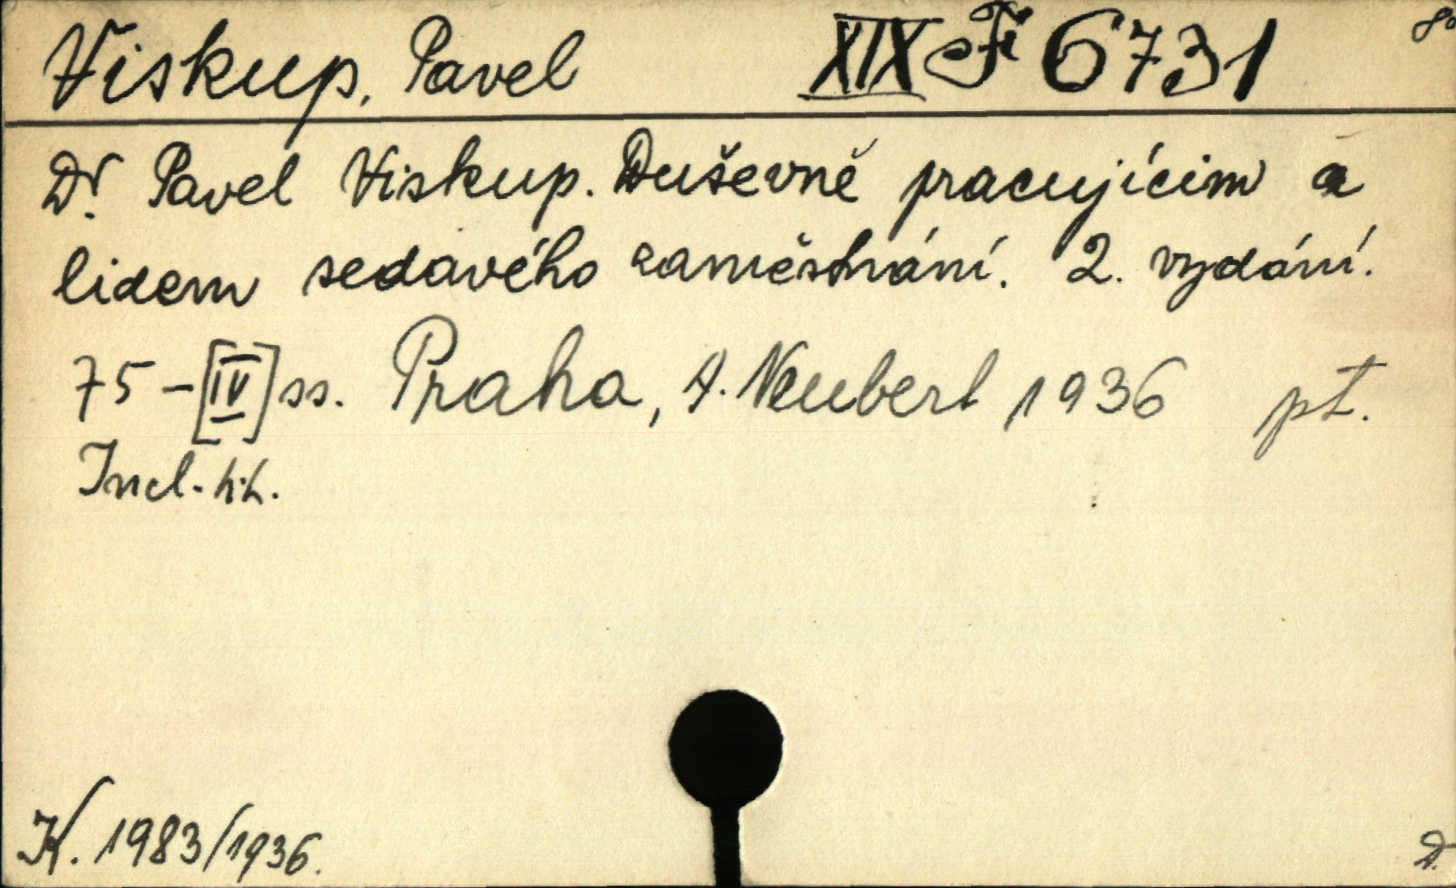 Viskup, Pavel XIX Fi 6731 8°
Dr. Pavel Viskup. Duševně pracujícim a
lidem sedavého zaměstnání. 2. vydání.
75-[IV] ss. Praha, A. Neubert 1936 pt.
Incl.
K. 1983/1936.
D.